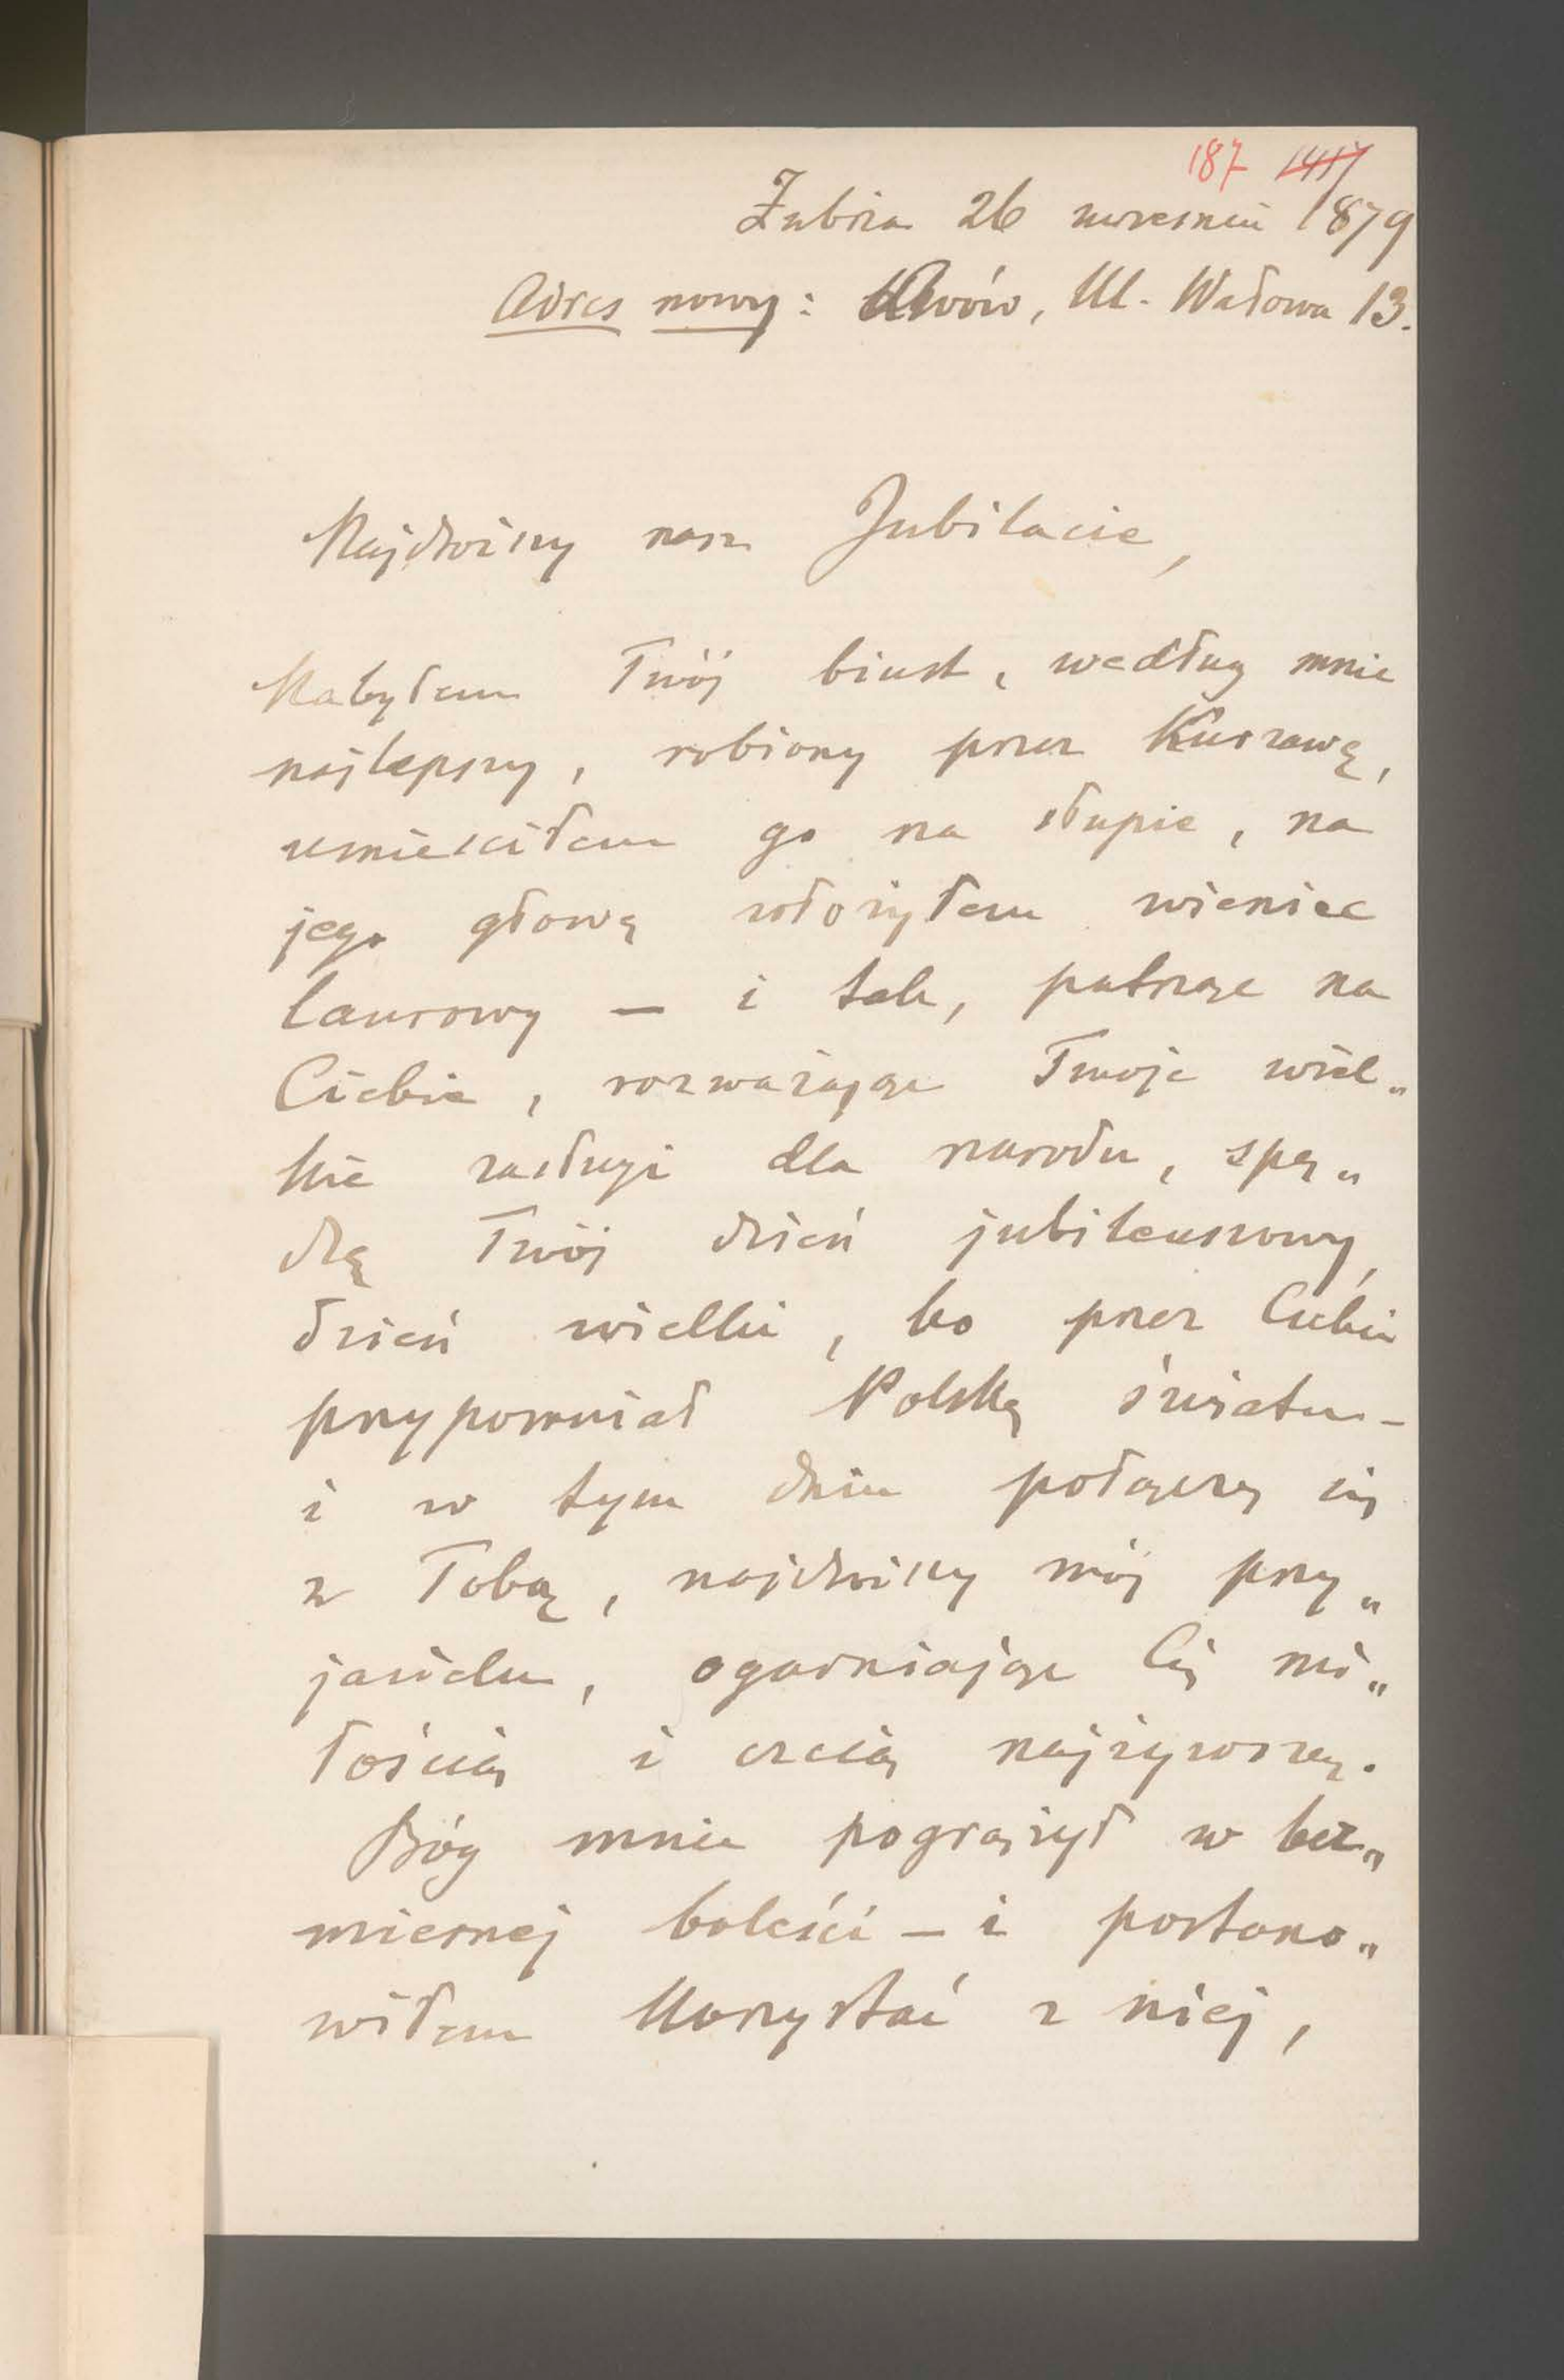 187 1417
Zubrza 26 wrzesnia 1879
Adres nowy: Lwów, Ul. Wałowa 13.
Najdroższy nasz Jubilacie,
Nabyłem Twój biust, według mnie
najlepszy, robiony przez Kurzawę,
umieściłem go na słupie, na
jego głowę włożyłem wieniec
laurowy — i tak, patrząc na
Ciebie, rozważając Twoje wiel„
kie zasługi dla narodu, spę„
dzę Twój dzień jubileuszowy,
dzień wielki, bo przez Ciebie
przypomniał Polskę światu —
i w tym dniu połączę się
z Tobą, najdroższy mój przy„
jacielu, ogarniając Cię mi„
łością i czcią najżywszą.
Bóg mnie pogrążył w bez„
miernej boleści — i postano„
wiłem korzystać z niej,